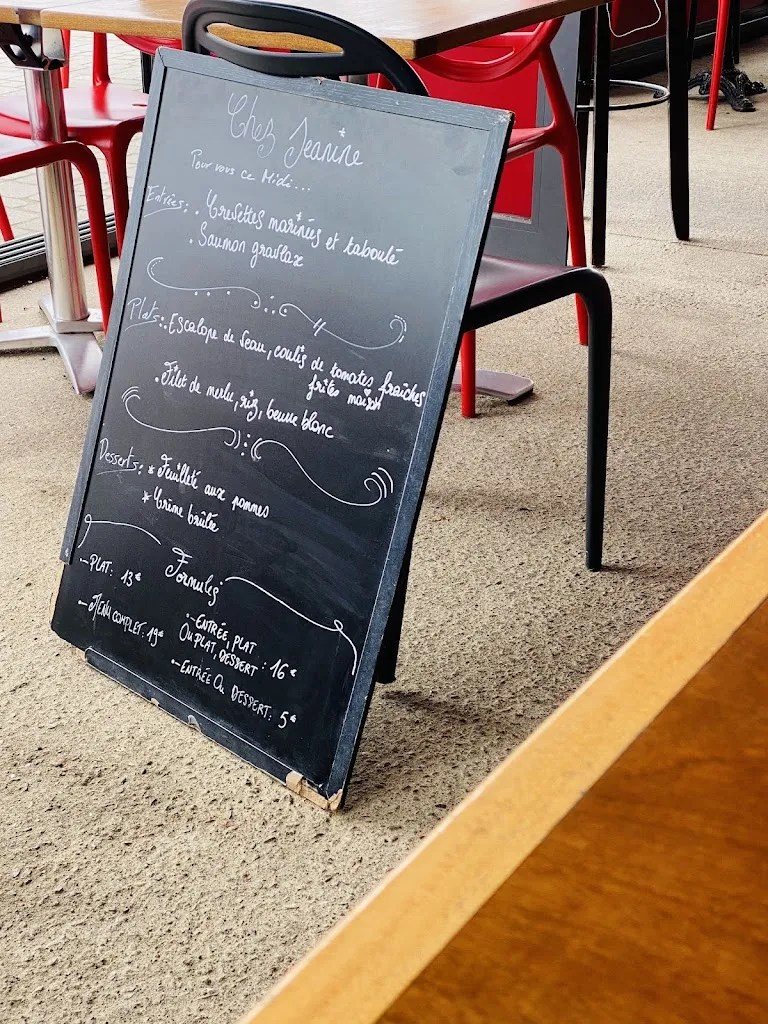 Chez Jeanine
Pour vous ce Midi...
Entrées: • Crevettes marinées et taboulé
• Saumon gravlax
Plats: • Escalope de veau, coulis de tomates fraîches
frites maison
• Filet de merlu, riz, beurre blanc
Desserts: * Feuilleté aux pommes
* Crème brûlée
Formules
- PLAT: 13€
- MENU COMPLET: 19€
- ENTRÉE, PLAT
OU PLAT, DESSERT: 16€
- ENTRÉE OU DESSERT: 5€